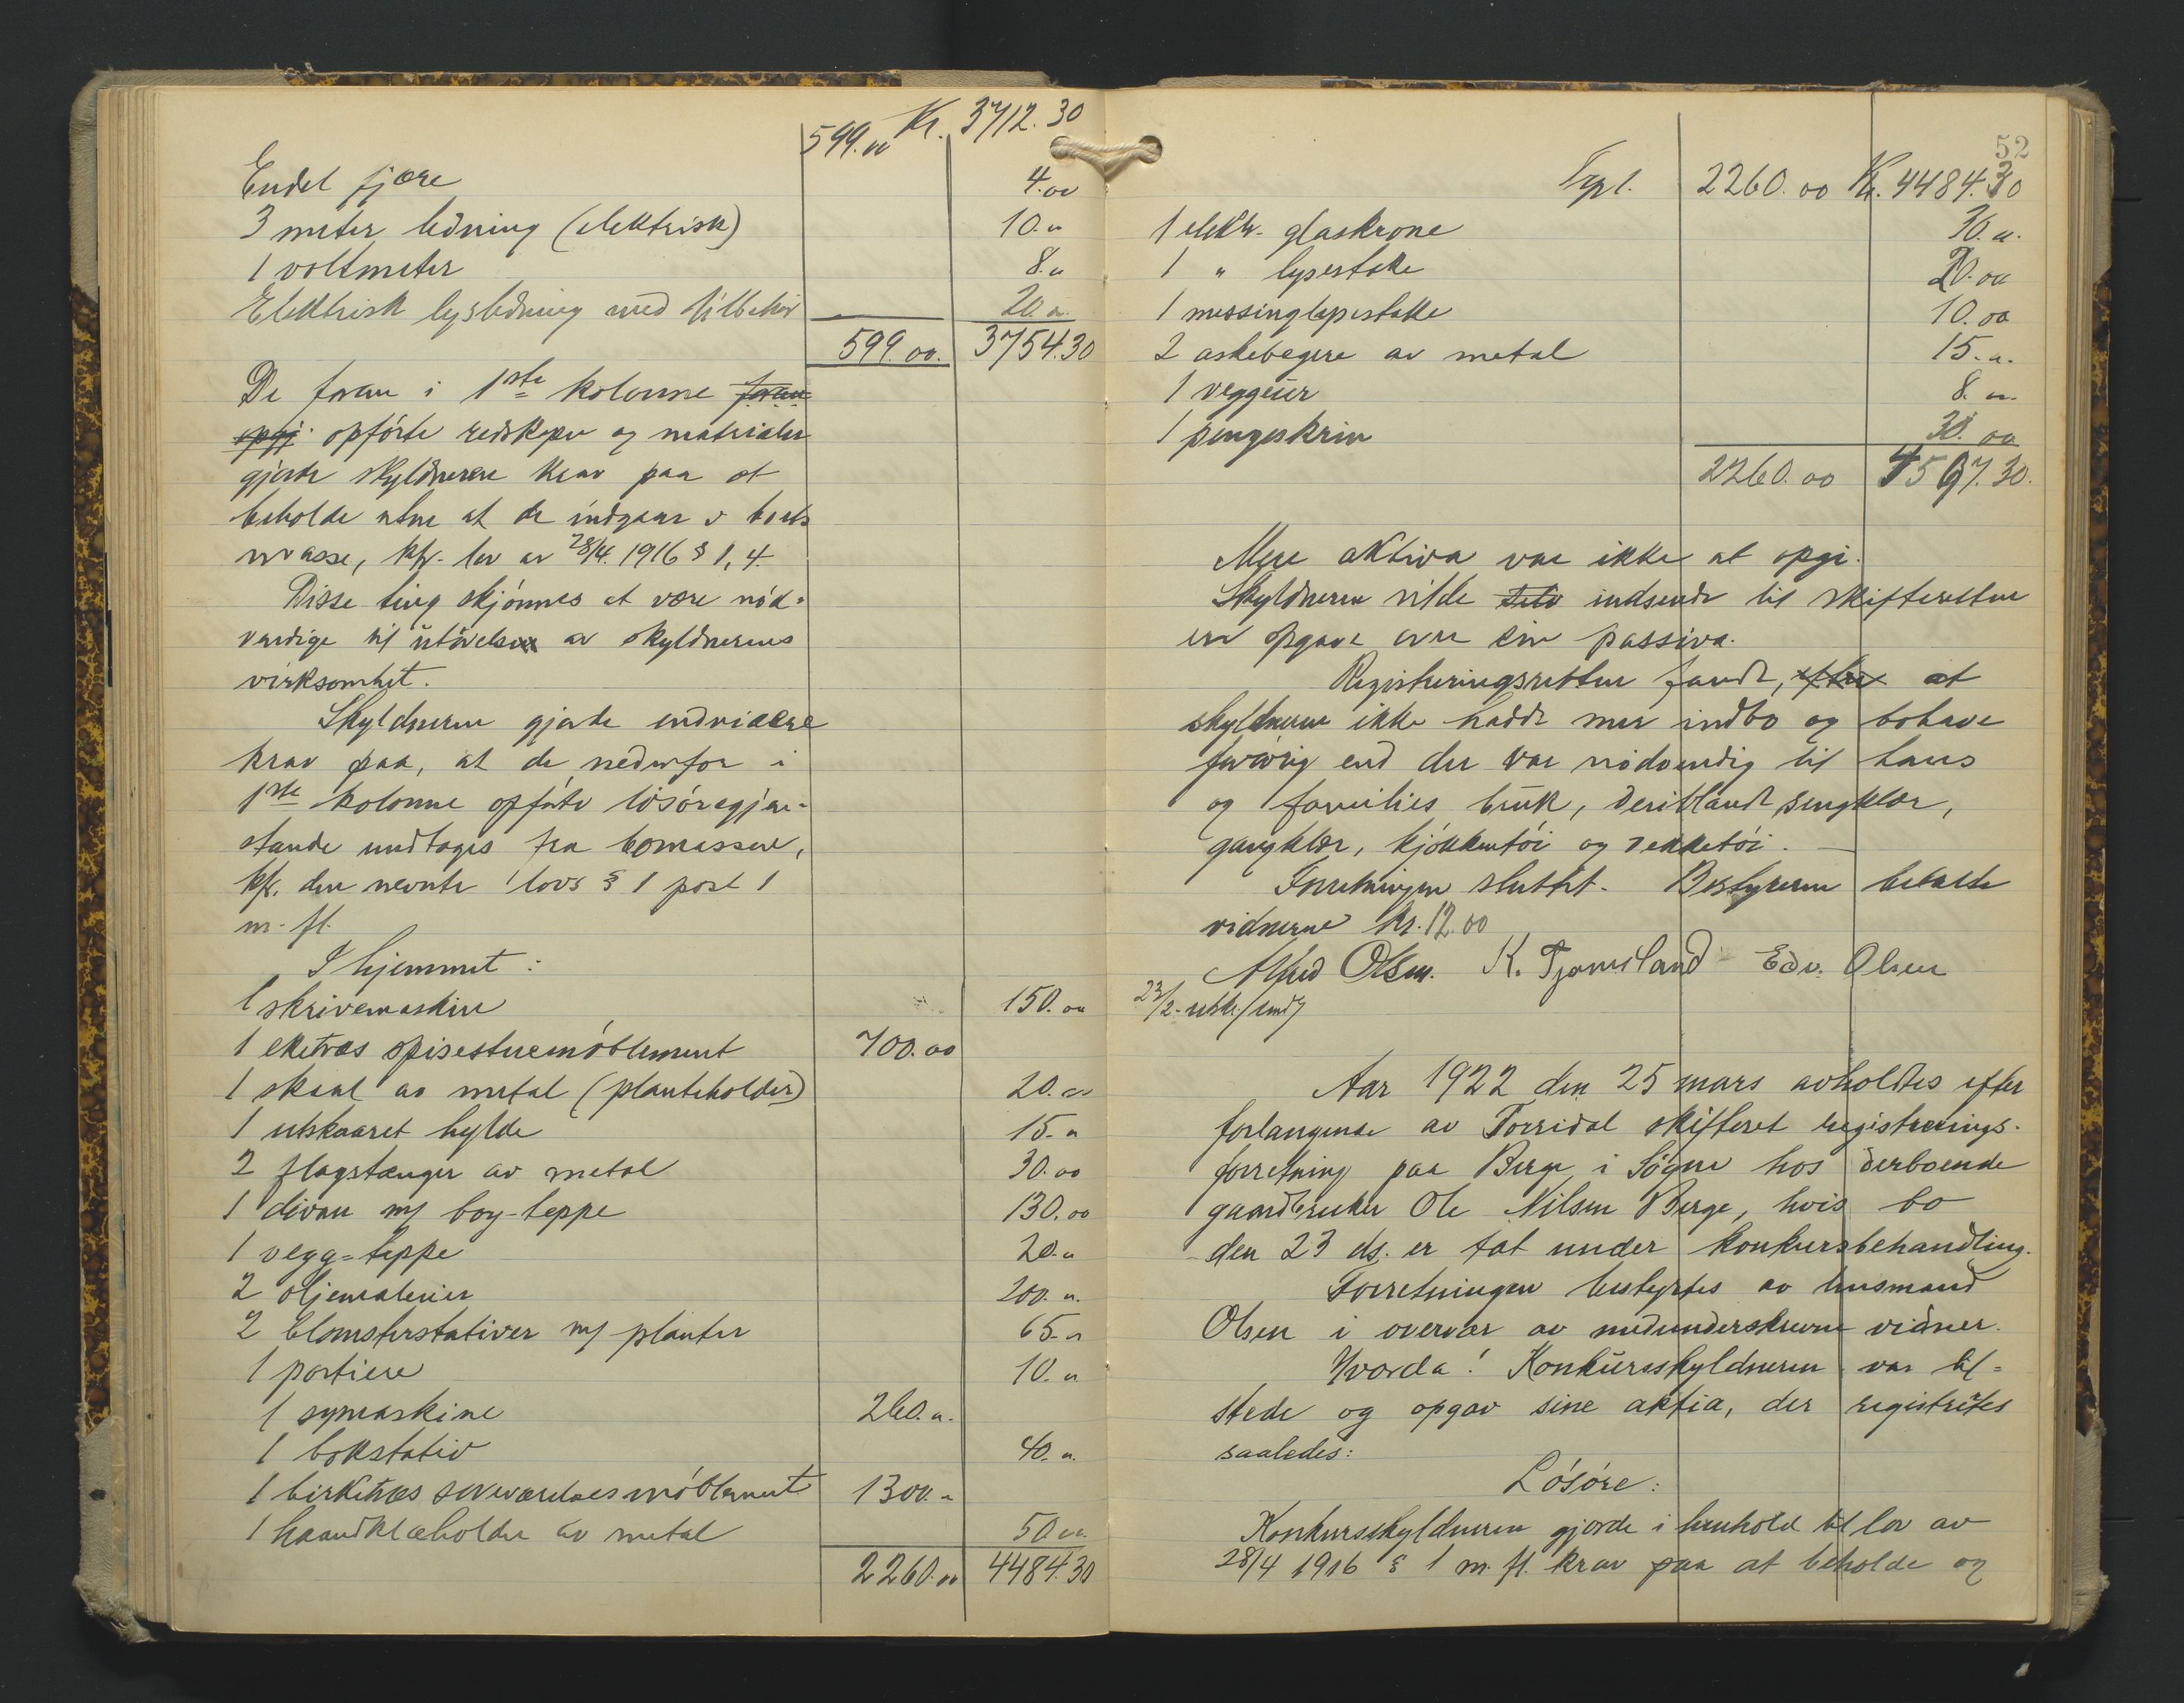 599.00 Kr. 3712.30
Endel fjære 4.00
3 meter ledning (elektrisk) 10.00
1 voltmeter 8.00
Elektrisk lysledning med tilbehör 20.00
599.00. 3754.30
De foran i 1ste kolonne foran
opgj. opförte redskaper og materialer
gjorde skyldneren krav paa at
beholde uten at de indgaar i boets
masse, kfr. lov av 28/4. 1916 § 1, 4.
Disse ting skjönnes at være nöd-
vendige til utövelsen av skyldnerens
virksomhet.
Skyldneren gjorde endvidere
krav paa, at de nedenfor i
1ste kolonne opförte lösöregjen-
stande undtages fra bomassen,
kfr. den nevnte lovs § 1 post 1
m. fl.
I hjemmet:
1 skrivemaskin 150.00
1 eketræs spisestuemöblement 700.00
1 skaal av metal (planteholder) 20.00
1 utskaaret hylde 15.00
2 flagstænger av metal 30.00
1 divan m/ boy-teppe 130.00
1 vegg-teppe 20.00
2 oljemalerier 200.00
2 blomsterstativer m/ planter 65.00
1 portiere 10.00
1 symaskine 260.00
1 bokstativ 40.00
1 birketræs soveværelsesmöblement 1300.00
1 haandklæholder av metal 50.00
2260.00 4484.30
52
Trpt. 2260.00 Kr. 4484.30
1 elektr. glaskrone 30.00
1 " lysestake 20.00
1 messinglysestake 10.00
2 askebegere av metal 15.00
1 veggeur 8.00
1 pengeskrin 30.00
2260.00 4597.30.
Mere aktiva var ikke at opgi.
Skyldneren vilde selv indsende til skifteretten
en opgave over sin passiva.
Registreringsretten fandt, efter at
skyldneren ikke hadde mer indbo og bohave
forövrig end der var nödvendig til hans
og families bruk, deriblandt sengklær,
gangklær, kjökkentöi og dekketöi.
Forretningen sluttet. Bestyreren betalte
vidnerne kr. 12.00
Alfred Olsen. K. Tjomsland Edv. Olsen
23/2- utskr./sendt
Aar 1922 den 25 mars avholdtes efter
forlangende av Torridal skifteret registrerings-
forretning paa Berge i Sögne hos derboende
gaardbruker Ole Nilsen Berge, hvis bo
den 23 ds. er tat under konkursbehandling.
Forretningen bestyrtes av lensmand
Olsen i overvær av medunderskrevne vidner.
Hvorda! Konkursskyldneren var til-
stede og opgav sine aktia, der registrertes
saaledes:
Lösöre:
Konkursskyldneren gjorde i henhold til lov av
28/4 1916 § 1 m. fl. krav paa at beholde og